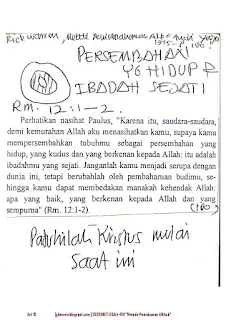 Rick Warren, Metode Pemahaman Alkitab yg
1995, p. 166!
PERSEMBAHAN
YG HIDUP &
IBADAH SEJATI
Rm. 12:1-2.
Perhatikan nasihat Paulus, "Karena itu, saudara-saudara,
demi kemurahan Allah aku menasihatkan kamu, supaya kamu
mempersembahkan tubuhmu sebagai persembahan yang
hidup, yang kudus dan yang berkenan kepada Allah: itu adalah
ibadahmu yang sejati. Janganlah kamu menjadi serupa dengan
dunia ini, tetapi berubahlah oleh pembaharuan budimu, se-
hingga kamu dapat membedakan manakah kehendak Allah:
apa yang baik, yang berkenan kepada Allah dan yang
sempurna" (Rm. 12.1-2).
(166)
Patuhilah Kristus mulai
saat ini